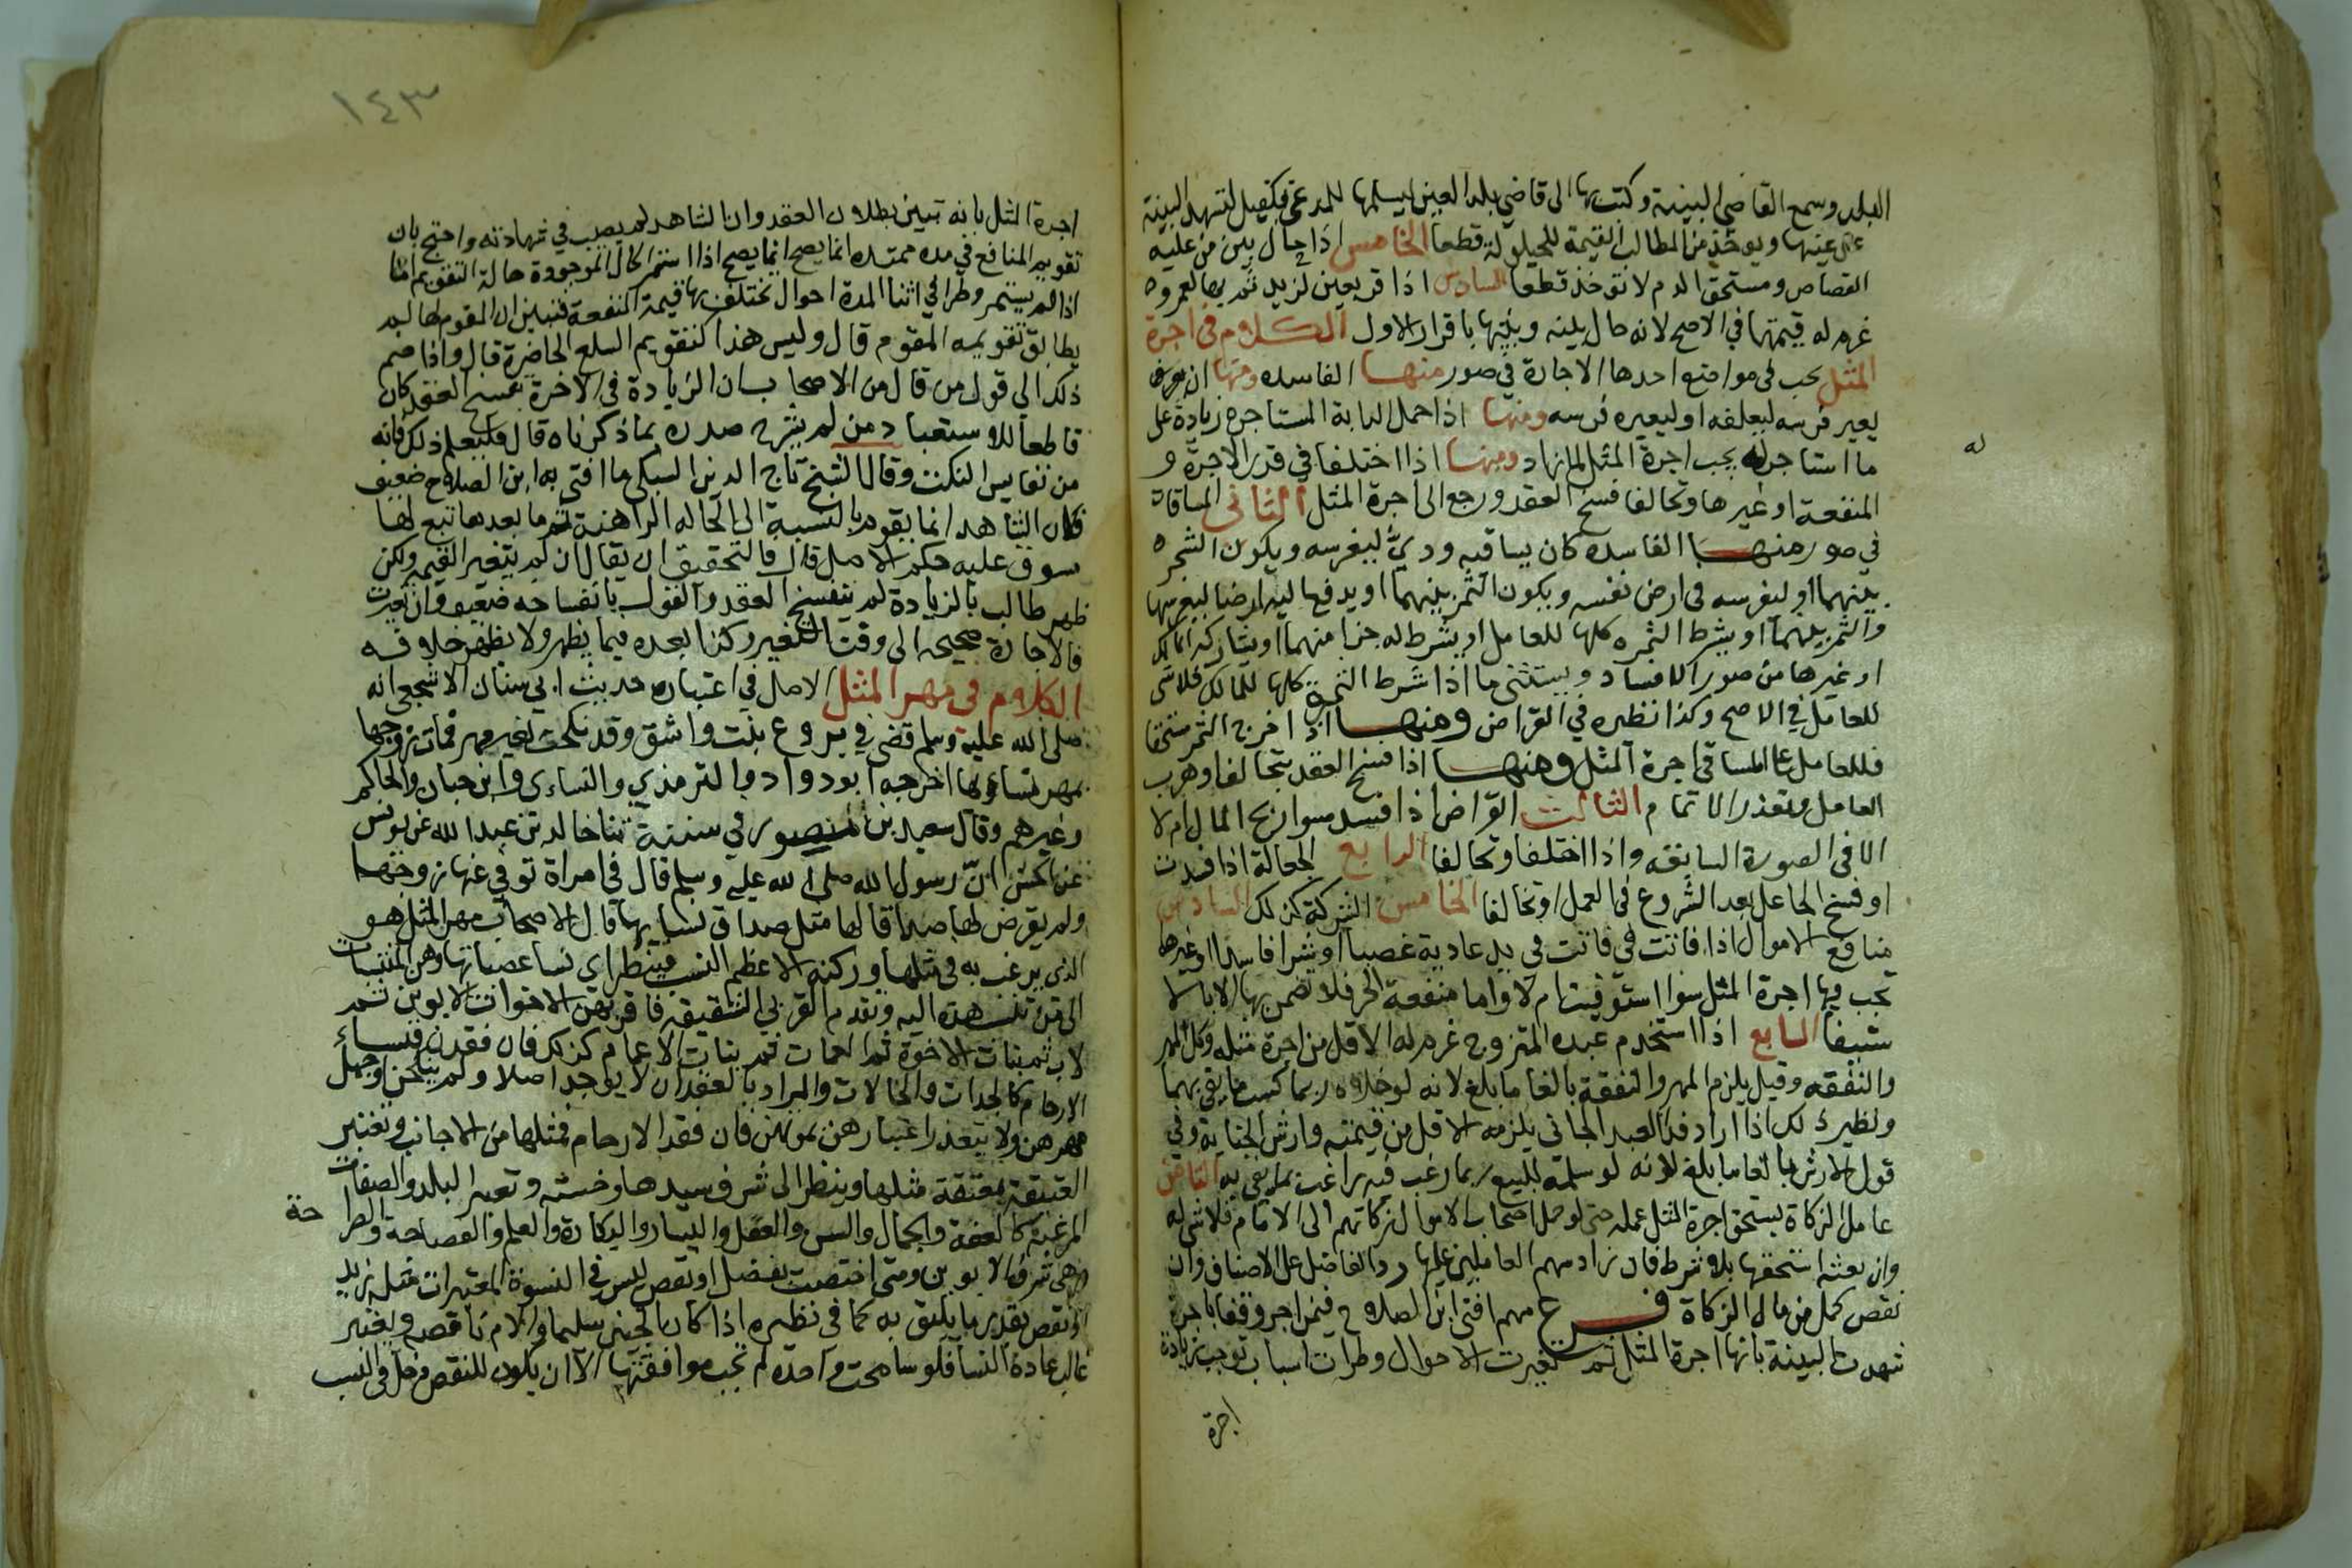 البلد وسمع القاضي البينة وكتب بها الى قاضي بلد العين ليسلمها للمدعي بكفيل لتشهد البينة
على عينها ويوخذ من الطالب القيمة للحيلولة قطعا الخامس اذا حال بين من عليه
القصاص ومستحق الدم لا تؤخذ قطعا السادس اذا اقر بعين لزيد ثم بها لعمرو
غرم له قيمتها في الاصح لانه حال بينه وبينها باقراره الاول الكلام في اجرة
المثل تجب في مواضع احدها الاجارة في صور منها الفاسده ومنها ان
يعير فرسه ليعلفه او ليعيره فرسه ومنها اذا حمل الدابة المستاجرة زيادة على
ما استاجر له يجب اجرة المثل لما زاد ومنها اذا اختلفا في قدر الاجرة و
له
المنفعة او غيرها وتحالفا فسخ العقد ورجع الى اجرة المثل الثاني المساقاة
في صور منها الفاسده كان يساقيه ودي ليغرسه ويكون الشجره
بينهما او ليغرسه في ارض نفسه ويكون الثمر بينهما او يدفع اليه ارضا ليغرسها
والثمر بينهما او يشرط الثمره كلها للعامل او يشرط له جزا منهما او يشاركه المالك
او غيرها من صور الافساد ويستثنى ما اذا شرط الثمرة كلها للمالك فلا شي
للعامل في الاصح وكذا نظيره في القراض ومنها اذا خرج الثمر مستحقا
فللعامل على المساقي اجرة المثل ومنها اذا فسخ العقد بتحالف او هرب
العامل وتعذر الاتمام الثالث القراض اذا فسد سوا ربح المال ام لا
الا في الصورة السابقه واذا اختلفا وتحالفا الرابع الجعالة اذا فسدت
او فسخ الجاعل بعد الشروع في العمل او تحالفا الخامس الشركة كذلك السادس
منافع الاموال اذا فاتت في فاتت في يد عادية غصبا او شرا فاسدا او غيرها
تجب فيها اجرة المثل سوا استوفيت ام لا واما منفعة الحر فلا تضمن بها الا بالا
ستيفا السابع اذا استخدم عبده المتزوج غرم له الاقل من اجرة مثله وكل المهر
والنفقه وقيل يلزم المهر والنفقة بالغا ما بلغ لانه لو خلاه ربما كسب ما يفي بهما
ونظير ذلك اذا اراد فدا العبد الجاني يلزمه الاقل من قيمته وارش الجناية وفي
قول الارش بالغا ما بلغ لانه لو سلمه للبيع ربما رغب فيه راغب بما يفي به الثامن
عامل الزكاة يستحق اجرة المثل عمله حتى لو حمل اصحاب الاموال زكاتهم الى الامام فلا شي له
وان بعثه استحقها بلا شرط فان زاد سهم العاملين عليها رد الفاضل على الاصناف وان
نقص كمل من مال الزكاة فرع مهم افتى ابن الصلاح فيمن اجر وقفا باجرة
شهدت البينة بانها اجرة المثل ثم تغيرت الاحوال وطرات اسباب توجب زيادة
اجرة
١٤٣
اجرة المثل بانه تبين بطلان العقد وان الشاهد لم يصب في شهادته واحتج بان
تقويم المنافع في مده ممتده انما يصح انما يصح اذا استمر الحال الموجودة حالة التقويم اما
اذا لم يستمر وطرا في اثنا المدة احوال تختلف بها قيمة المنفعة فتبين ان المقوم لها لم
يطابق تقويمه المقوم قال وليس هذا كتقويم السلع الحاضرة قال واذا ضم
ذلك الى قول من قال من الاصحاب بان الزيادة في الاخرة تفسخ العقد كان
قاطعا للاستبعاد من لم يشرح صدره بما ذكرناه قال فليعلم ذلك فانه
من نفايس النكت وقال الشيخ تاج الدين السبكي ما افتى به ابن الصلاح ضعيف
فان الشاهد انما يقوم بالنسبة الى الحاله الراهنة ثم ما بعدها تبع لها
سوق عليه حكم الاصل قال فالتحقيق ان يقال ان لم يتغير القيمه ولكن
ظهر طالب بالزيادة لم ينفسخ العقد والقول بانفساخه ضعيف وان تغيرت
فالاجارة صحيحه الى وقت التغير وكذا بعده فيما يظهر ولا يظهر خلافه
الكلام في مهر المثل الاصل في اعتباره حديث ابي سنان الاشجعي انه
صلى الله عليه وسلم قضى في بروع بنت واشق وقد نكحت بغير مهر فمات زوجها
بمهر نسائها اخرجه ابو دواد والترمذي والنساءي وابن حبان والحاكم
وغيرهم وقال سعيد بن المنصور في سننه ثنا خالد بن عبد الله عن يونس
عن الحسن ان رسول الله صلى الله عليه وسلم قال في امراة توفي عنها زوجها
ولم يفرض لها صداقا لها مثل صداق نسايها قال الاصحاب مهر المثل هو
الذي يرغب به في مثلها وركنه الاعظم النسب فينظر اي نسا عصباتها وهن المنتسبات
الى من تنسب هذه اليه وتقدم القربي الشقيقة فاقربهن الاخوات لابوين ثم
لاب ثم بنات الاخوة ثم العمات ثم بنات الاعمام كذلك فان فقدن فنساء
الارحام كالجدات والخالات والمراد بالفقدان لا يوجد اصلا ولم ينكحن او جهل
مهرهن ولا يتعذر اعتبارهن بموتهن فان فقد الارحام فمثلها من الاجانب وتعتبر
العتيقة بمعتقة مثلها وينظر الى شرف سيدها وخسته وتعبر البلد والصفات
المرغبة كالعفة والجمال والسن والعقل واليسار والبكارة والعلم والفصاحة والصرا
حة
وهي شرف الابوين ومتى اختصت بفضل او نقص ليس في النسوة المعتبرات مثله زيد
او نقص بقدر ما يليق به كما في نظيره اذا كان الجنين سليما والام ناقصه ويعتبر
غالب عادة النسا فلو سامحت واحده لم تجب موافقتها الا ان يكون للنقص دخل في النسب